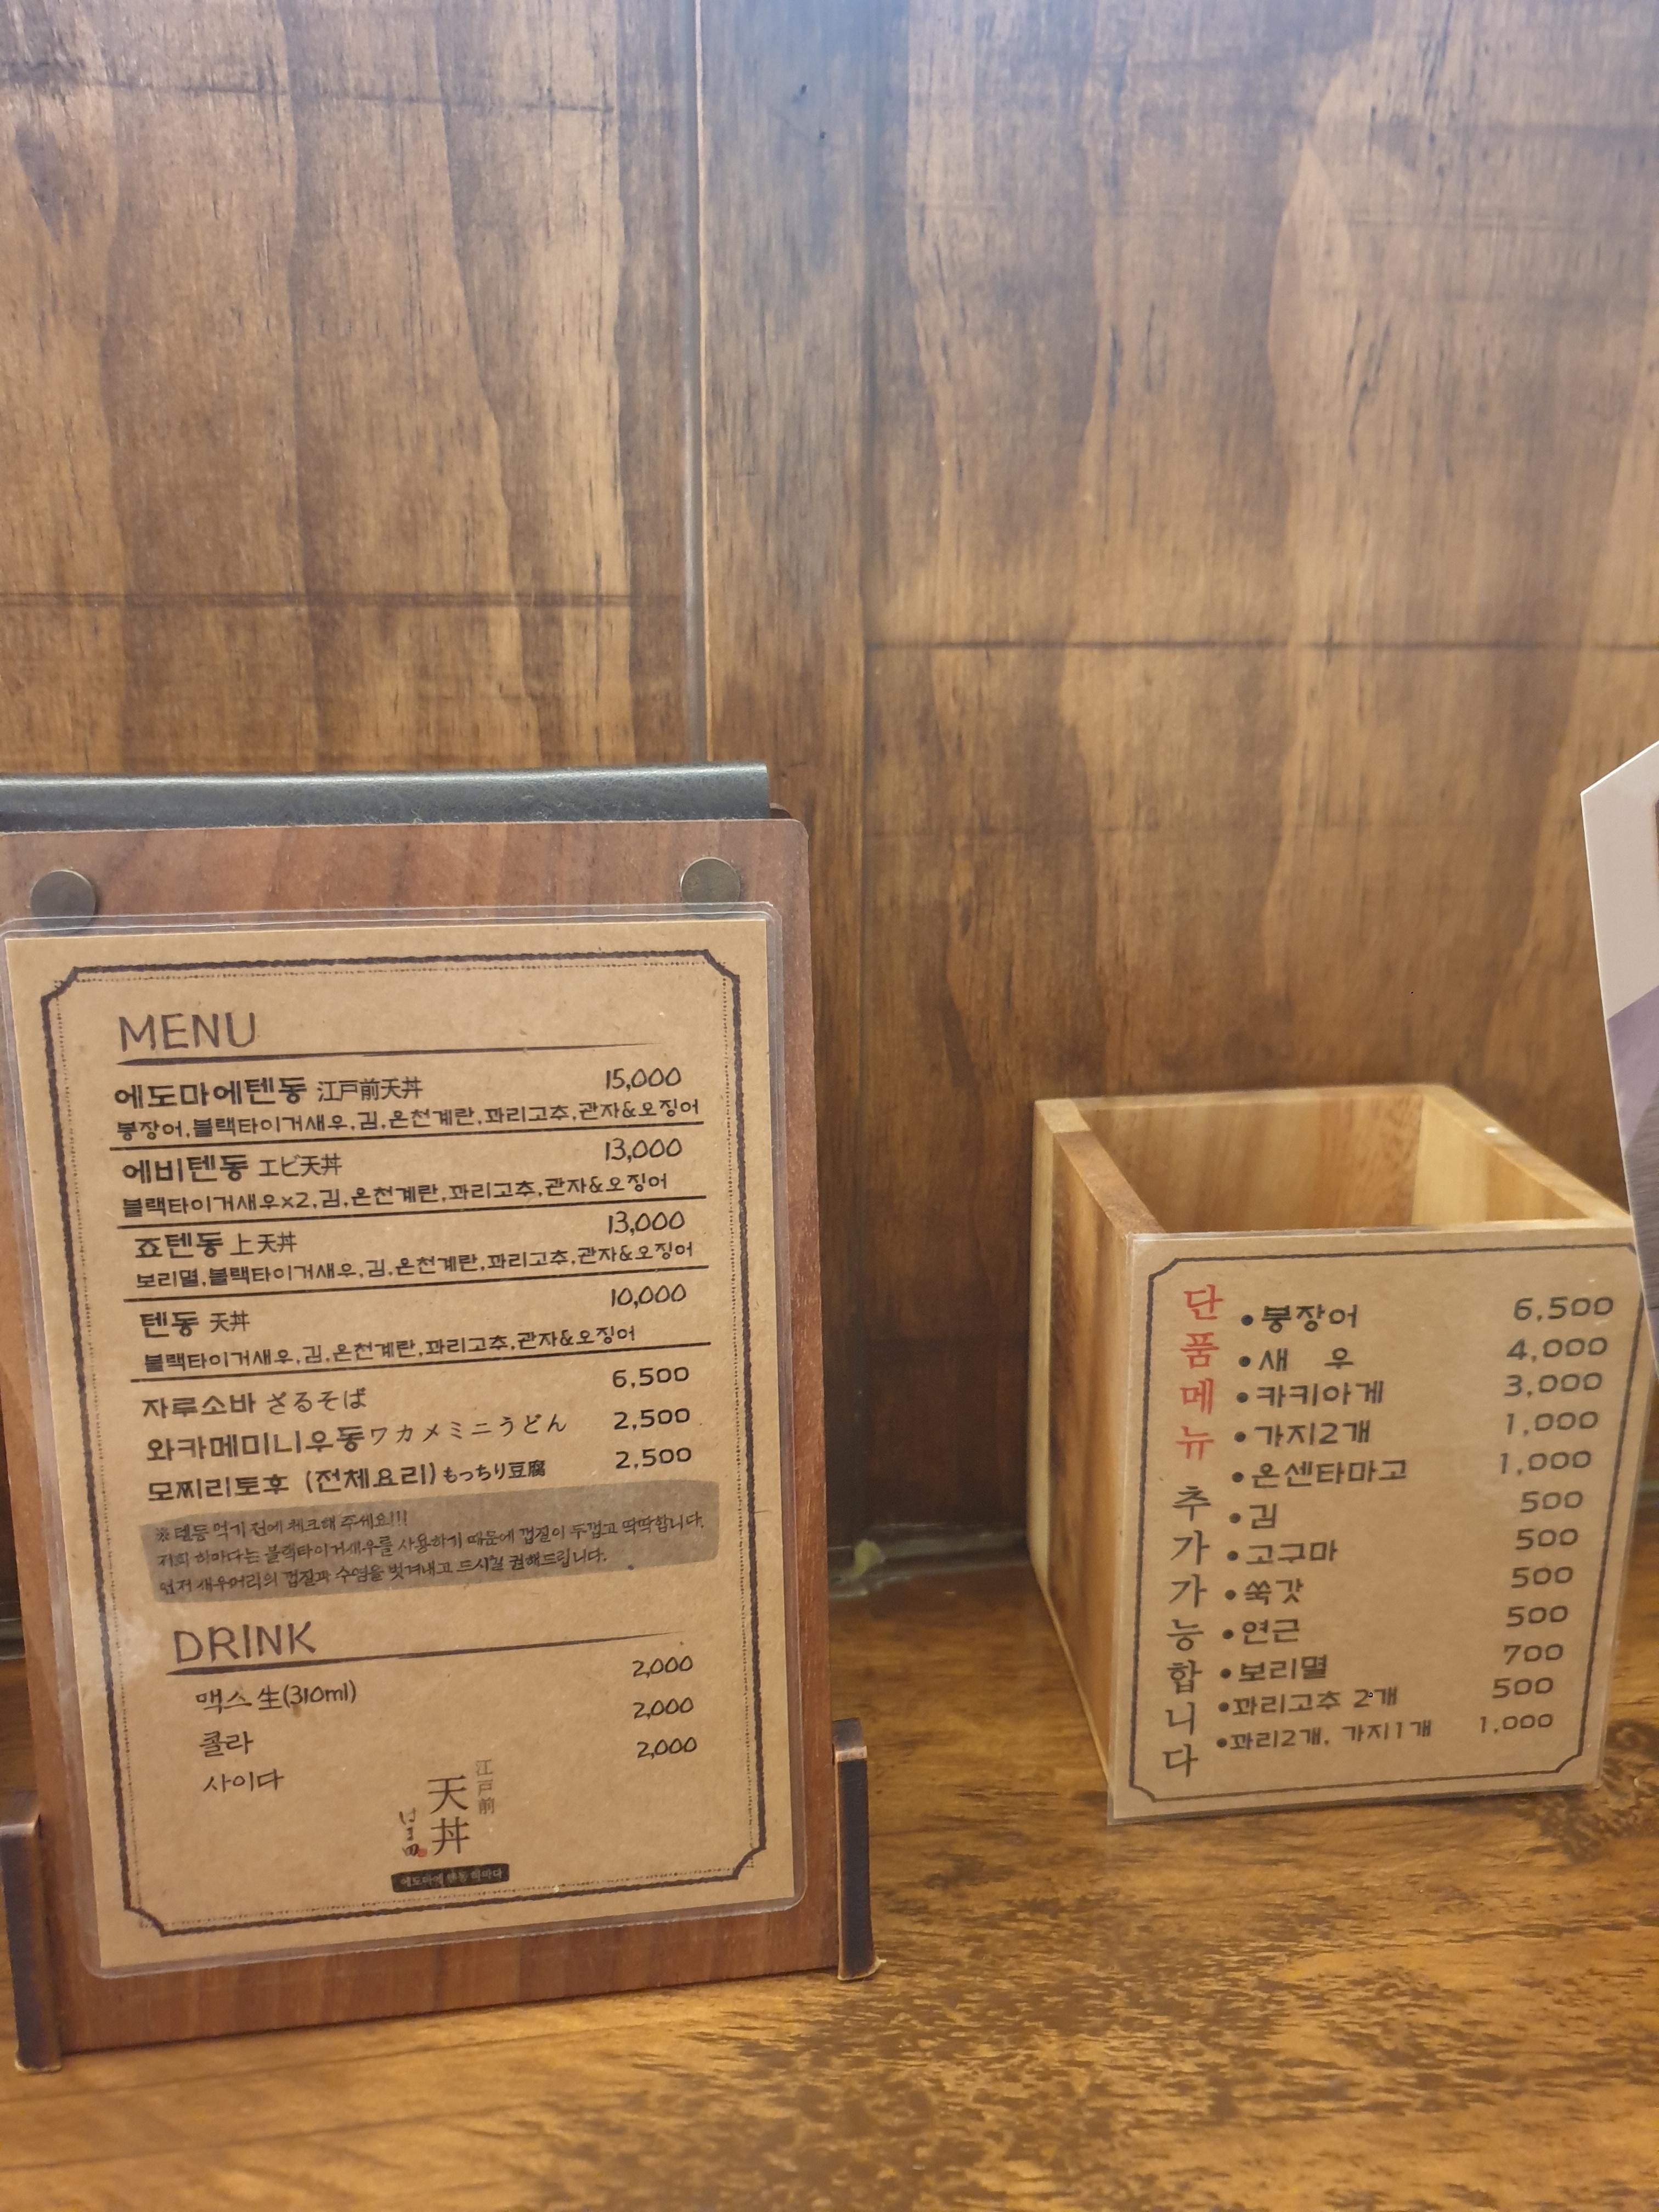 MENU
에도마에텐동 江戸前天丼 15,000
붕장어,블랙타이거새우,김,온천계란,꽈리고추,관자&오징어
에비텐동 エビ天丼 13,000
블랙타이거새우x2,김,온천계란,꽈리고추,관자&오징어
죠텐동 上天丼 13,000
보리멸,블랙타이거새우,김,온천계란,꽈리고추,관자&오징어
텐동 天丼 10,000
블랙타이거새우,김,온천계란,꽈리고추,관자&오징어
자루소바 ざるそば 6,500
와카메미니우동ワカメミニうどん 2,500
모찌리토후 (전체요리)もっちり豆腐 2,500
※텐동 먹기 전에 체크해 주세요!!!
저희 하마다는 블랙타이거새우를 사용하기 때문에 껍질이 두껍고 딱딱합니다.
먼저 새우머리의 껍질과 수염을 벗겨내고 드시길 권해드립니다.
DRINK
맥스 生(310ml) 2,000
콜라 2,000
사이다 2,000
江戸前
天丼
에도마에 텐동 하마다
단품메뉴
추가가능합니다
•붕장어 6,500
•새 우 4,000
•카키아게 3,000
•가지2개 1,000
•온센타마고 1,000
•김 500
•고구마 500
•쑥갓 500
•연근 500
•보리멸 700
•꽈리고추 2개 500
•꽈리2개, 가지1개 1,000